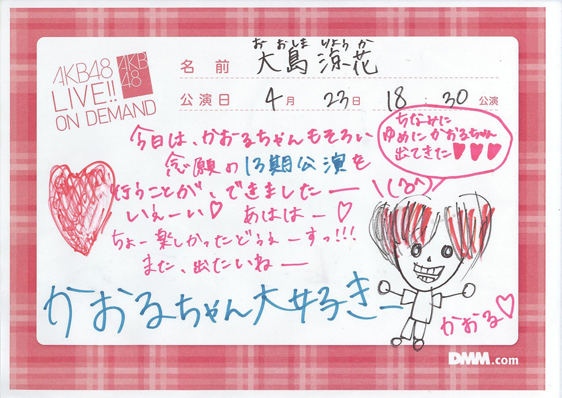 AKB48
LIVE!!
ON DEMAND
AKB
48
おおしま りょうか
名前 大島 涼花
公演日 4月 23日 18:30 公演
ちなみに
ゆめにかおるちゃん
出てきた♥♥♥
今日は、かおるちゃんもそろい
念願の13期公演を
行うことが、できましたー
いぇーい♡ あははー♡
ちょー楽しかったどぅるーすっ!!!
また、出たいねー
かおるちゃん大好きー
かおる♡
DMM.com